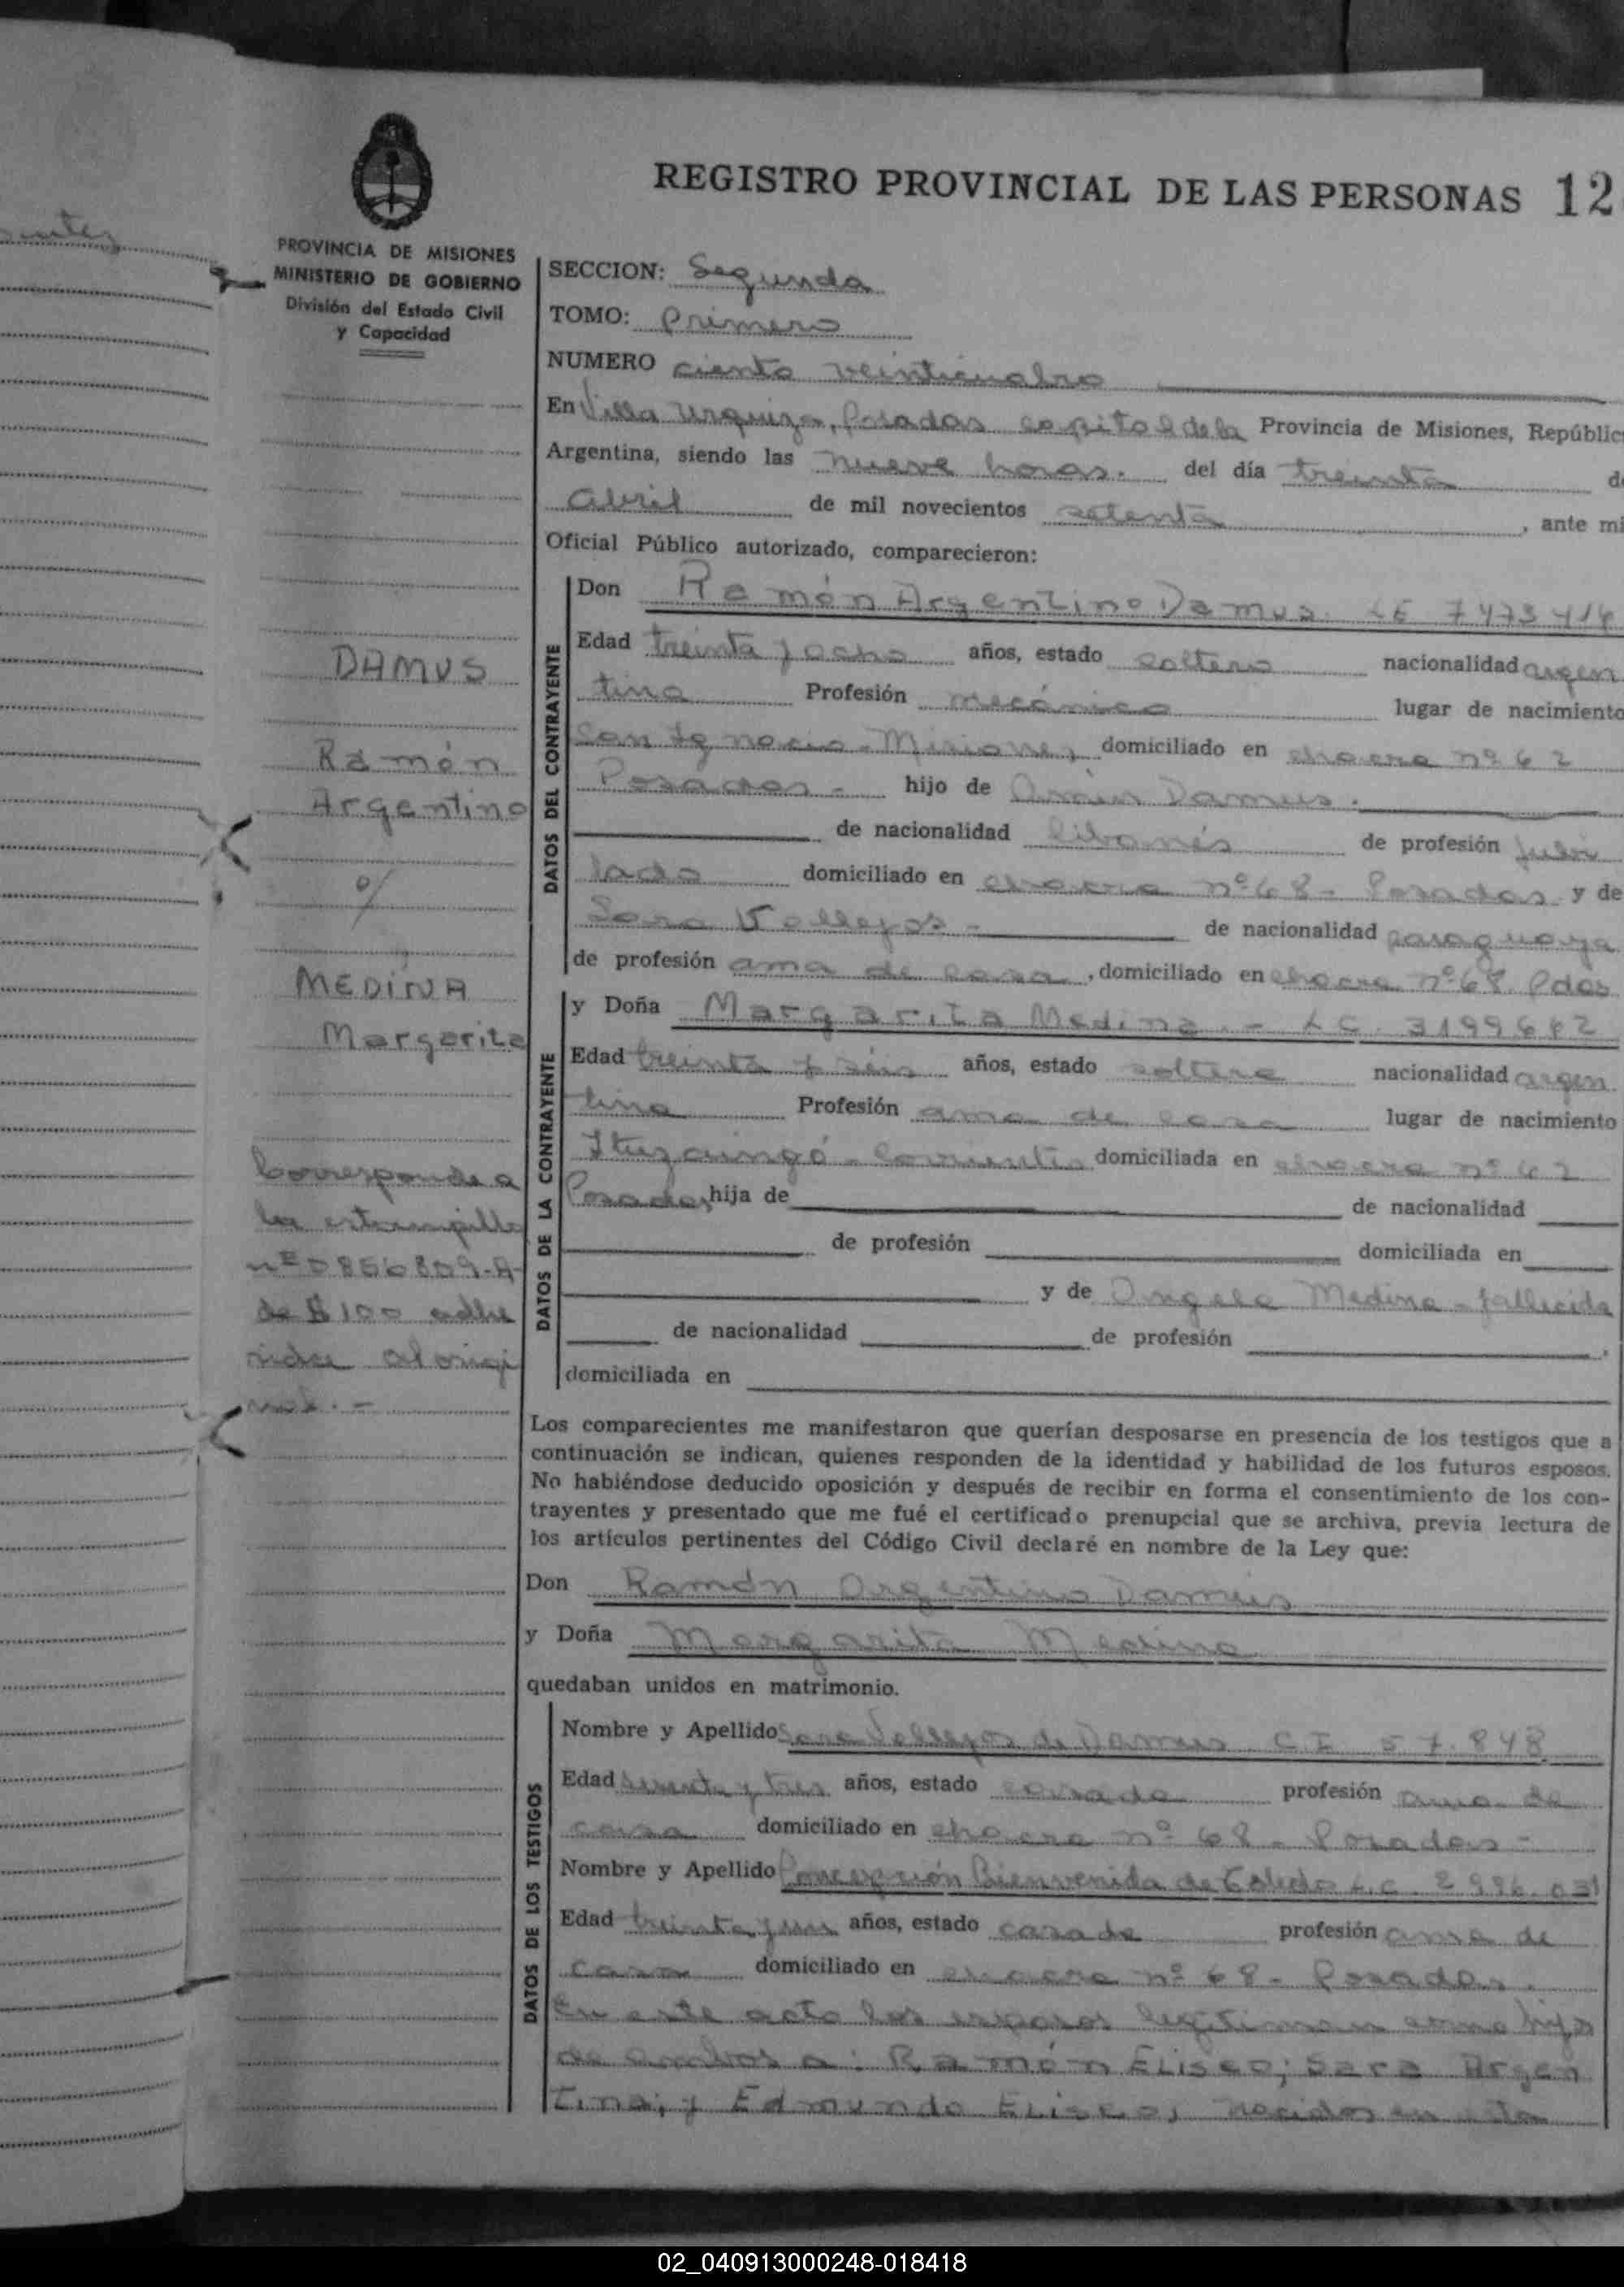 REGISTRO PROVINCIAL DE LAS PERSONAS 12
PROVINCIA DE MISIONES
MINISTERIO DE GOBIERNO
División del Estado Civil
y Capacidad
SECCION: Segunda
TOMO: Primero
NUMERO ciento veinticuatro
En Villa Urquiza, Posadas capital de la Provincia de Misiones, Repúblic
Argentina, siendo las nueve horas. del día treinta d
abril de mil novecientos setenta, ante mi
Oficial Público autorizado, comparecieron:
DATOS DEL CONTRAYENTE
Don Ramón Argentino Damus. LE 7473414
Edad treinta y ocho años, estado soltero nacionalidad argen
tina Profesión mecánico lugar de nacimiento
San Ignacio - Misiones, domiciliado en chacra nº 62
Posadas - hijo de Amin Damus.
de nacionalidad libanés de profesión jubi
lado domiciliado en chacra nº 68 - Posadas y de
Sara Vallejos - de nacionalidad paraguaya
de profesión ama de casa, domiciliado en chacra nº 68 Pdas
DAMUS
Ramón
Argentino
c/
MEDINA
Margarita
Corresponde a
la estampilla
nº 0856809-A-
de $ 100 adhe
rida al origi
nal. -
DATOS DE LA CONTRAYENTE
y Doña Margarita Medina. - LC. 3199682
Edad treinta y séis años, estado soltera nacionalidad argen
tina Profesión ama de casa lugar de nacimiento
Ituzaingó - Corrientes domiciliada en chacra nº 62
Posadas, hija de de nacionalidad
de profesión domiciliada en
y de Angela Medina - fallecida
de nacionalidad de profesión .
domiciliada en
Los comparecientes me manifestaron que querían desposarse en presencia de los testigos que a
continuación se indican, quienes responden de la identidad y habilidad de los futuros esposos.
No habiéndose deducido oposición y después de recibir en forma el consentimiento de los con-
trayentes y presentado que me fué el certificado prenupcial que se archiva, previa lectura de
los artículos pertinentes del Código Civil declaré en nombre de la Ley que:
Don Ramón Argentino Damus
y Doña Margarita Medina
quedaban unidos en matrimonio.
DATOS DE LOS TESTIGOS
Nombre y Apellido Sara Vallejos de Damus C I 57.848
Edad sesenta y tres años, estado casada profesión ama de
casa domiciliado en chacra nº 68 - Posadas -
Nombre y Apellido Concepción Bienvenida de Toledo L.C. 2996.031
Edad treinta y un años, estado casada profesión ama de
casa domiciliado en chacra nº 68 - Posadas.
En este acto los esposos legitiman como hijos
de ambos a: Ramón Eliseo; Sara Argen
tina; y Edmundo Eliseo, nacidos en esta
02_040913000248-018418